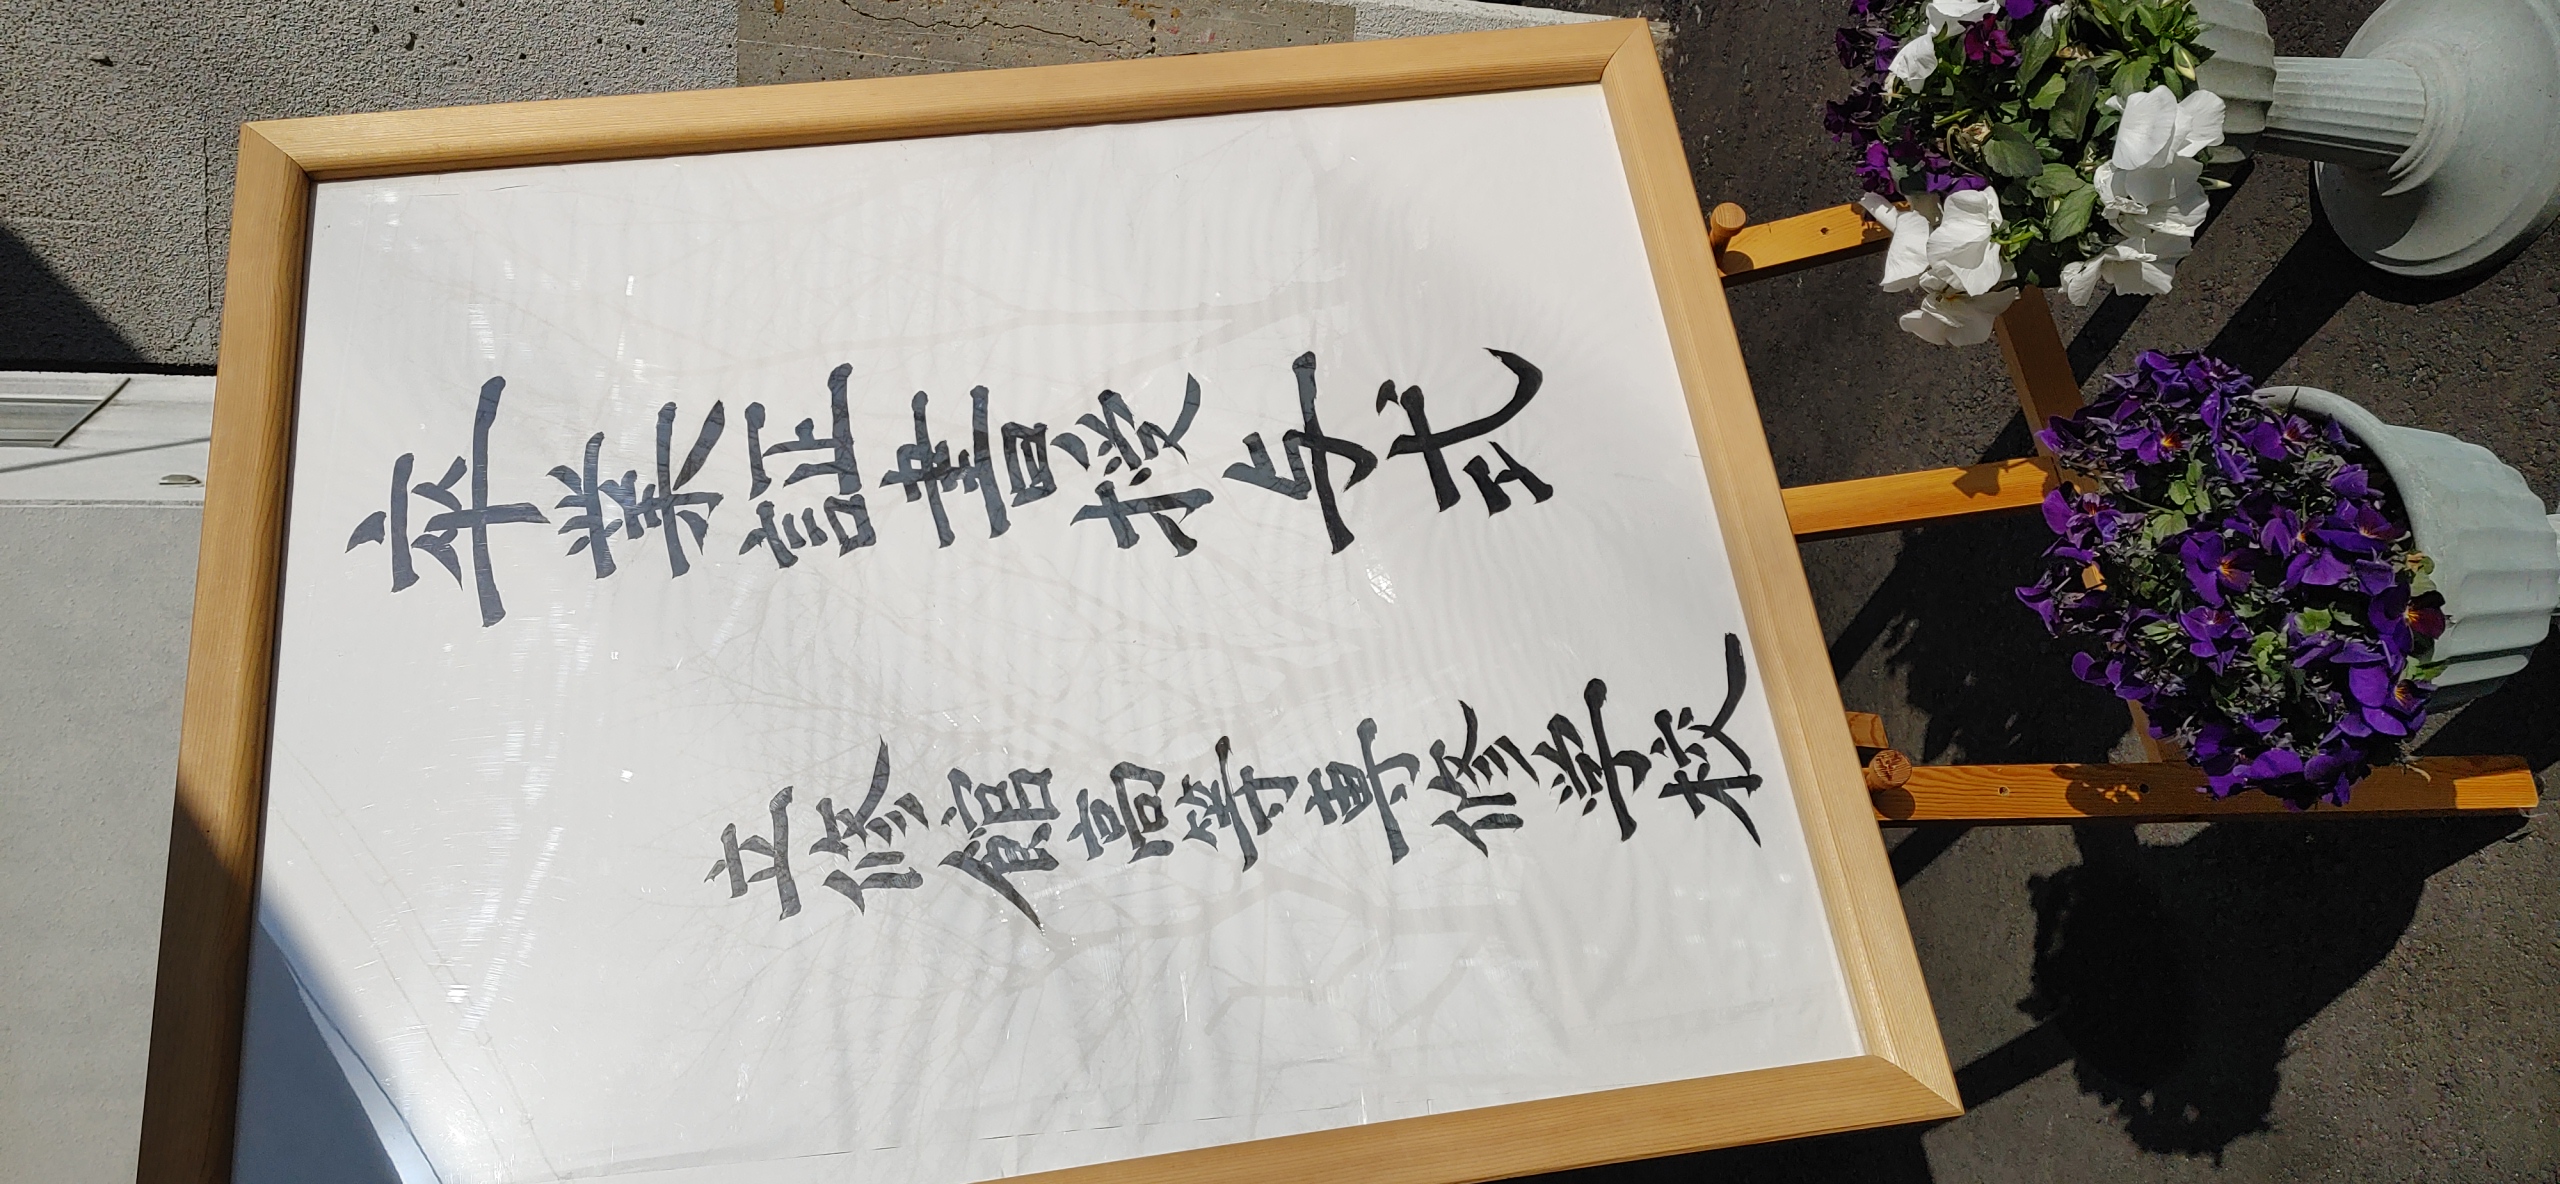 卒業証書授与式
立修館高等専修学校